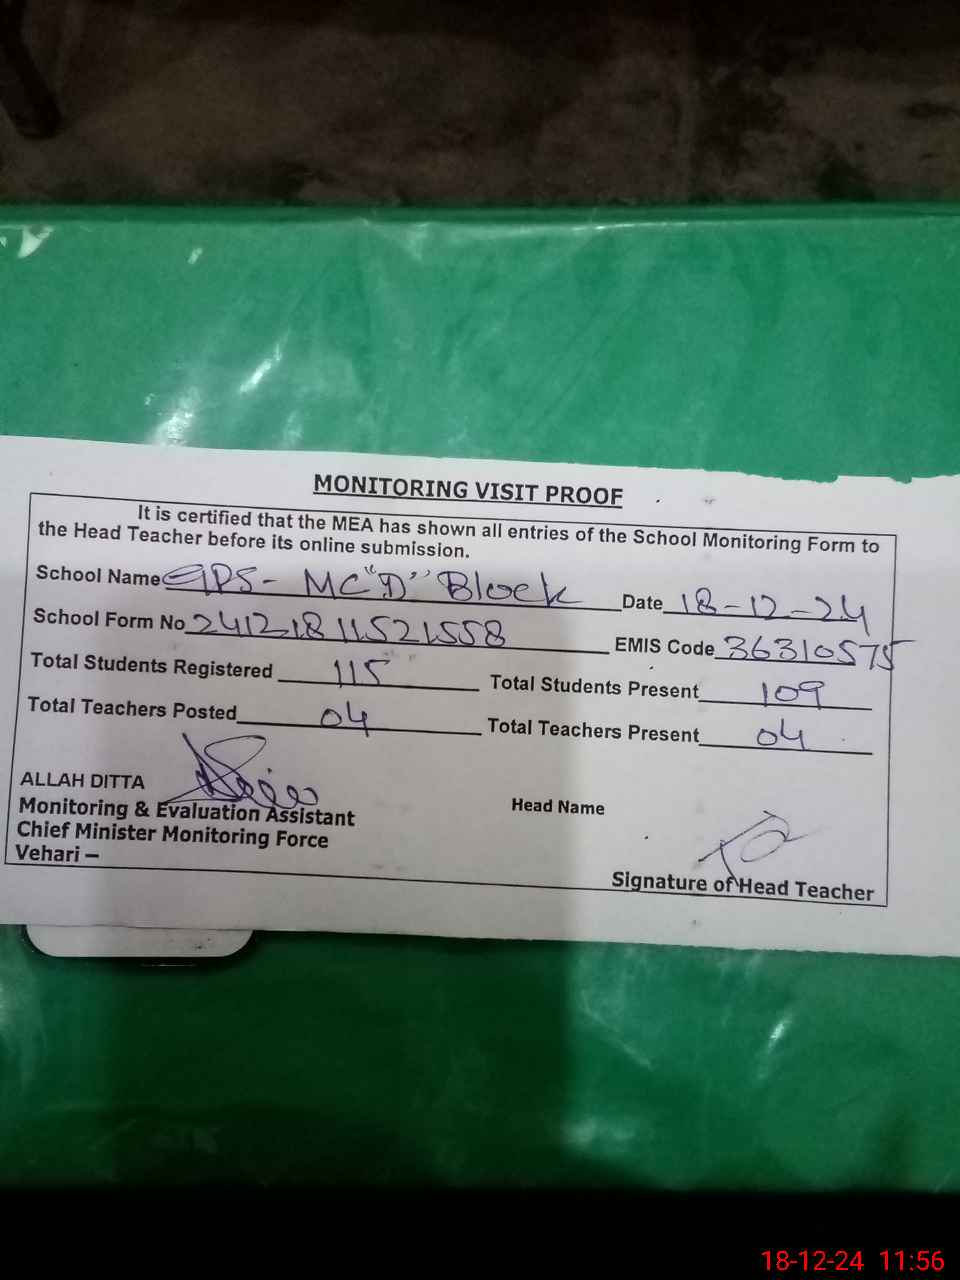 MONITORING VISIT PROOF
It is certified that the MEA has shown all entries of the School Monitoring Form to
the Head Teacher before its online submission.
School Name GPS - MC "D" Block Date 18-12-24
School Form No 24121811521558 EMIS Code 36310575
Total Students Registered 115 Total Students Present 109
Total Teachers Posted 04 Total Teachers Present 04
ALLAH DITTA
Monitoring & Evaluation Assistant Head Name
Chief Minister Monitoring Force
Vehari –
Signature of Head Teacher
18-12-24 11:56